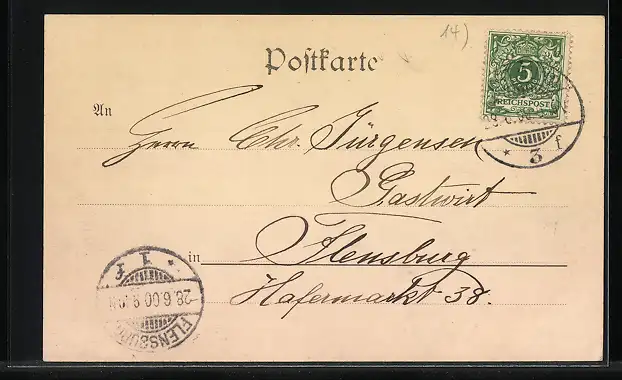 14)
Postkarte
5
REICHSPOST
28.6.00
* 3 f
An
Herrn Chr. Jürgensen
Gastwirt
in Flensburg
Hafermarkt 38.
28.6.00 9-10N
FLENSBURG